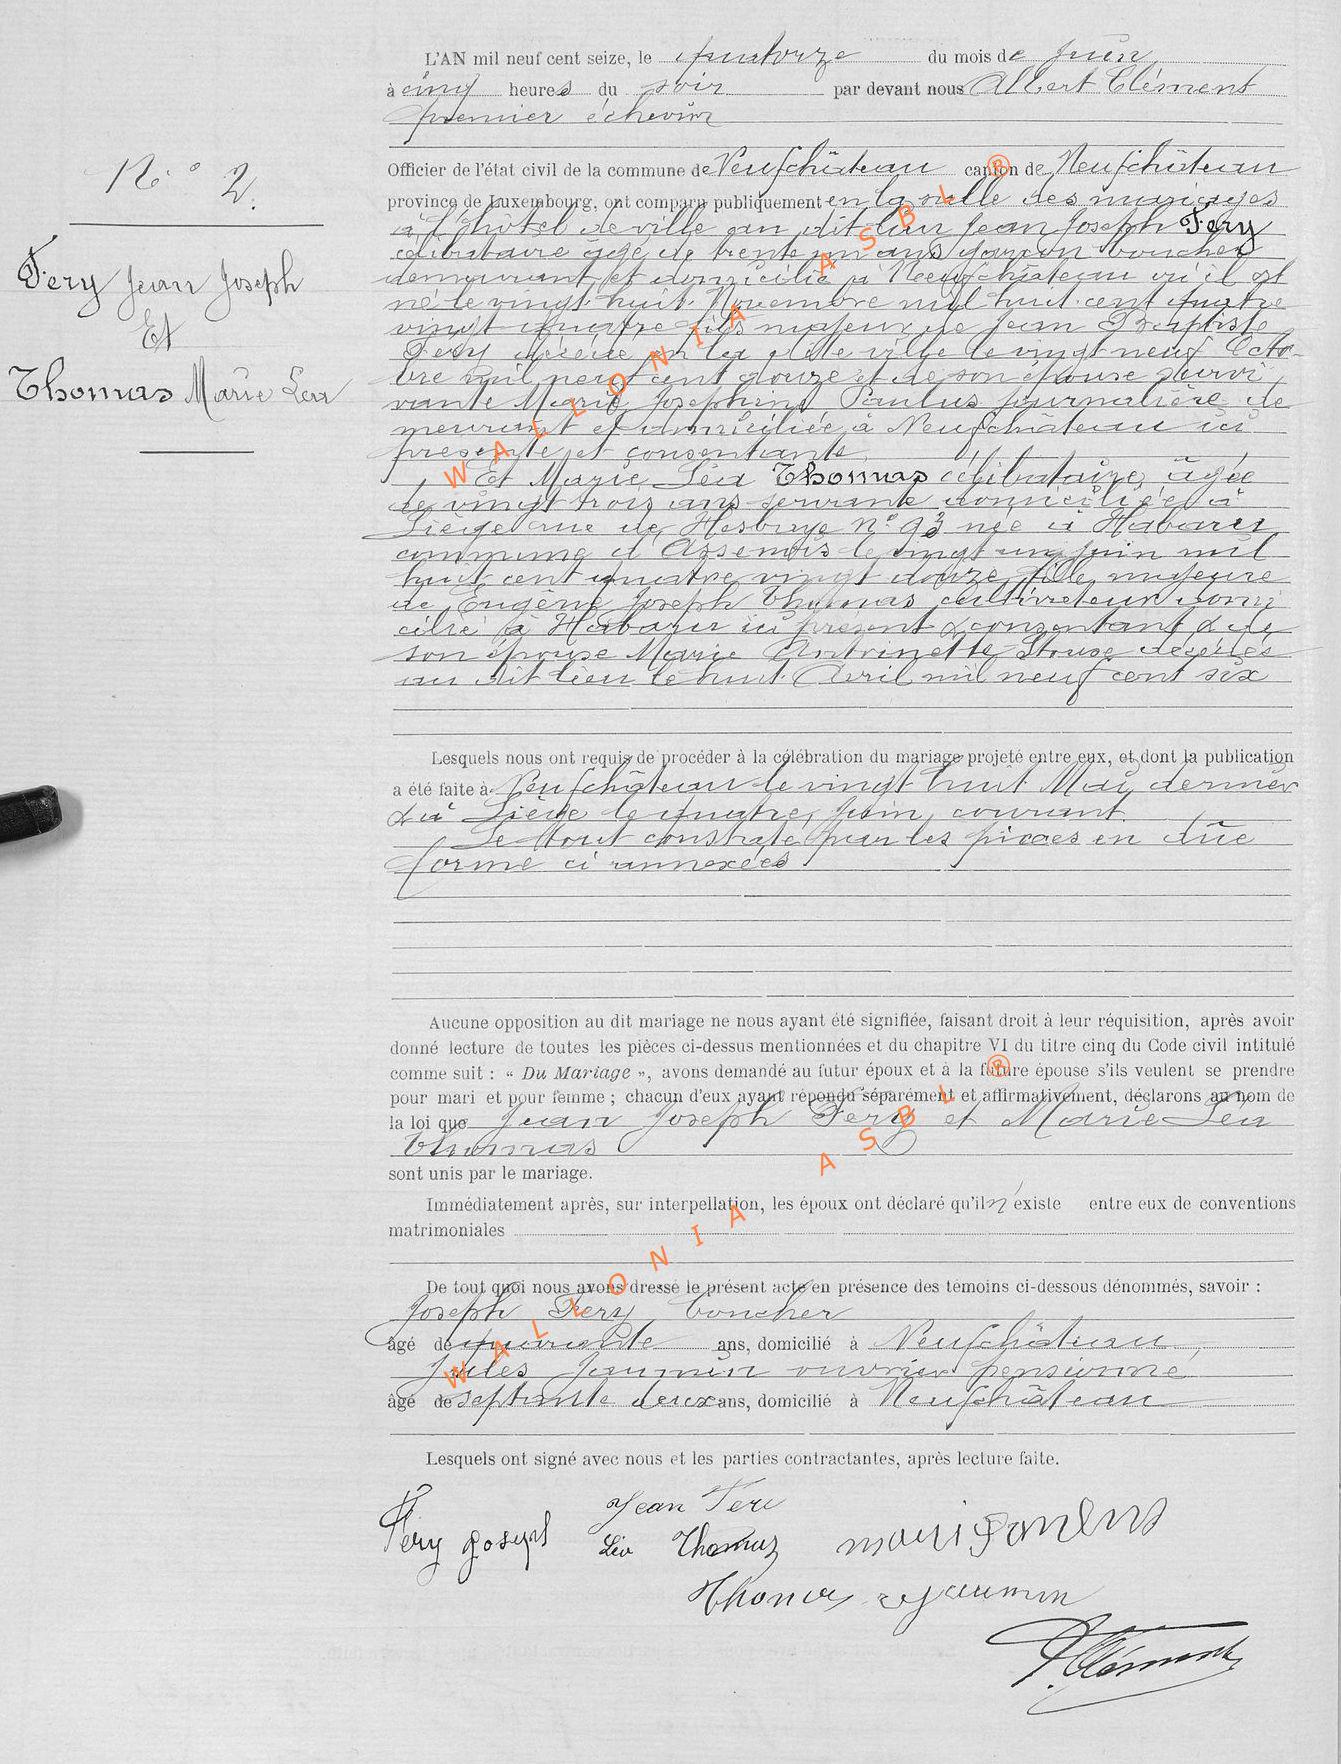 N.° 2.
Fery Jean Joseph
Et
Thomas Marie Léa
L'AN mil neuf cent seize, le quatorze du mois de Juin
à cinq heures du soir par devant nous Albert Clément
premier échevin
Officier de l'état civil de la commune de Neufchâteau canton de Neufchâteau
province de Luxembourg, ont comparu publiquement en la salle des mariages
à l'hôtel de ville au dit lieu Jean Joseph Fery
célibataire âgé de trente un ans garçon boucher
demeurant et domicilié à Neufchâteau où il est
né le vingt huit Novembre mil huit cent quatre
vingt quatre fils majeur de Jean Baptiste
Fery décédé en la dite ville le vingt neuf Octo-
bre mil neuf cent douze et de son épouse survi
vante Marie Josephine Paulus journalière de
meurant et domiciliée à Neufchâteau ici
présente et consentante
Et Marie Léa Thomas célibataire, âgée
de vingt trois ans servante domiciliée à
Liège rue de Hesbaye n° 93 née à Habaru
commune d'Assenois le vingt un Juin mil
huit cent quatre vingt douze, fille majeure
de Eugène Joseph Thomas cultivateur domi
cilié à Habaru ici présent & consentant & de
son épouse Marie Antoinette décédée
au dit lieu le huit Avril mil neuf cent six
Lesquels nous ont requis de procéder à la célébration du mariage projeté entre eux, et dont la publication
a été faite à Neufchâteau le vingt huit Mai dernier
& à Liège le quatre Juin courant.
Le tout constaté par les pièces en dûe
forme ci annexées
Aucune opposition au dit mariage ne nous ayant été signifiée, faisant droit à leur réquisition, après avoir
donné lecture de toutes les pièces ci-dessus mentionnées et du chapitre VI du titre cinq du Code civil intitulé
comme suit : « Du Mariage », avons demandé au futur époux et à la future épouse s'ils veulent se prendre
pour mari et pour femme ; chacun d'eux ayant répondu séparément et affirmativement, déclarons au nom de
la loi que Jean Joseph Fery et Marie Léa
Thomas
sont unis par le mariage.
Immédiatement après, sur interpellation, les époux ont déclaré qu'il n'existe entre eux de conventions
matrimoniales
De tout quoi nous avons dressé le présent acte en présence des témoins ci-dessous dénommés, savoir :
Joseph Fery boucher
âgé de quarante ans, domicilié à Neufchâteau
Jules Jaumin ouvrier pensionné
âgé de septante deux ans, domicilié à Neufchâteau
Lesquels ont signé avec nous et les parties contractantes, après lecture faite.
Jean Fery
Fery Joseph Léa Thomas
Thomas Jaumin
A Clément
WALLONIA ASBL ®
WALLONIA ASBL ®